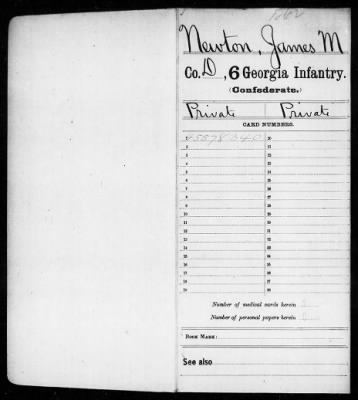 Newton, James M
Co. D, 6 Georgia Infantry.
(Confederate.)
Private Private
CARD NUMBERS.
1 45578340 20
2 21
3 22
4 23
5 24
6 25
7 26
8 27
9 28
10 29
11 30
12 31
13 32
14 33
15 34
16 35
17 36
18 37
19 38
Number of medical cards herein
Number of personal papers herein
BOOK MARK:
See also